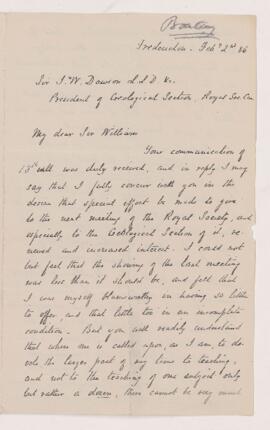 Bailey
Fredericton. Feby 2nd 86
Sir J. W. Dawson L.L.D &c.
President of Geological Section, Royal Soc. Can
My dear Sir William
Your communication of
13th ult was duly received, and in reply I may
say that I fully concur with you in the
desire that special effort be made to give
to the next meeting of the Royal Society, and
especially to the Geological Section of it, re-
newed and increased interest. I could not
but feel that the showing of the last meeting
was less than it should be, and felt that
I was myself blameworthy in having so little
to offer, and that little too in an incomplete
condition. But you will readily understand
that when one is called upon, as I am, to de-
vote the larger part of my time to teaching,
and not to the teaching of one subject only
but rather a dozen, there cannot be very much